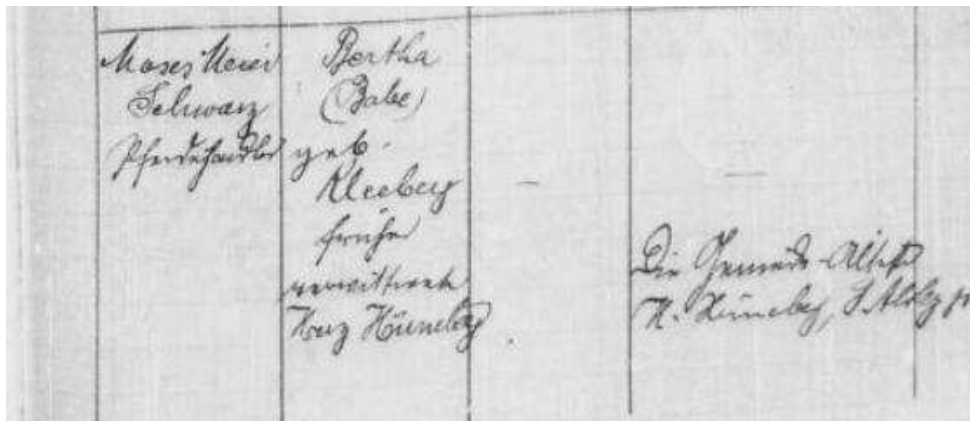 Moses Meier
Schwarz
Pferdehändler
Bertha
(Babe)
geb.
Kleeberg
früher
verwittwete
Herz Hüneberg
—
—
Die Gemeinde-Älteste
H. Hüneberg, S.